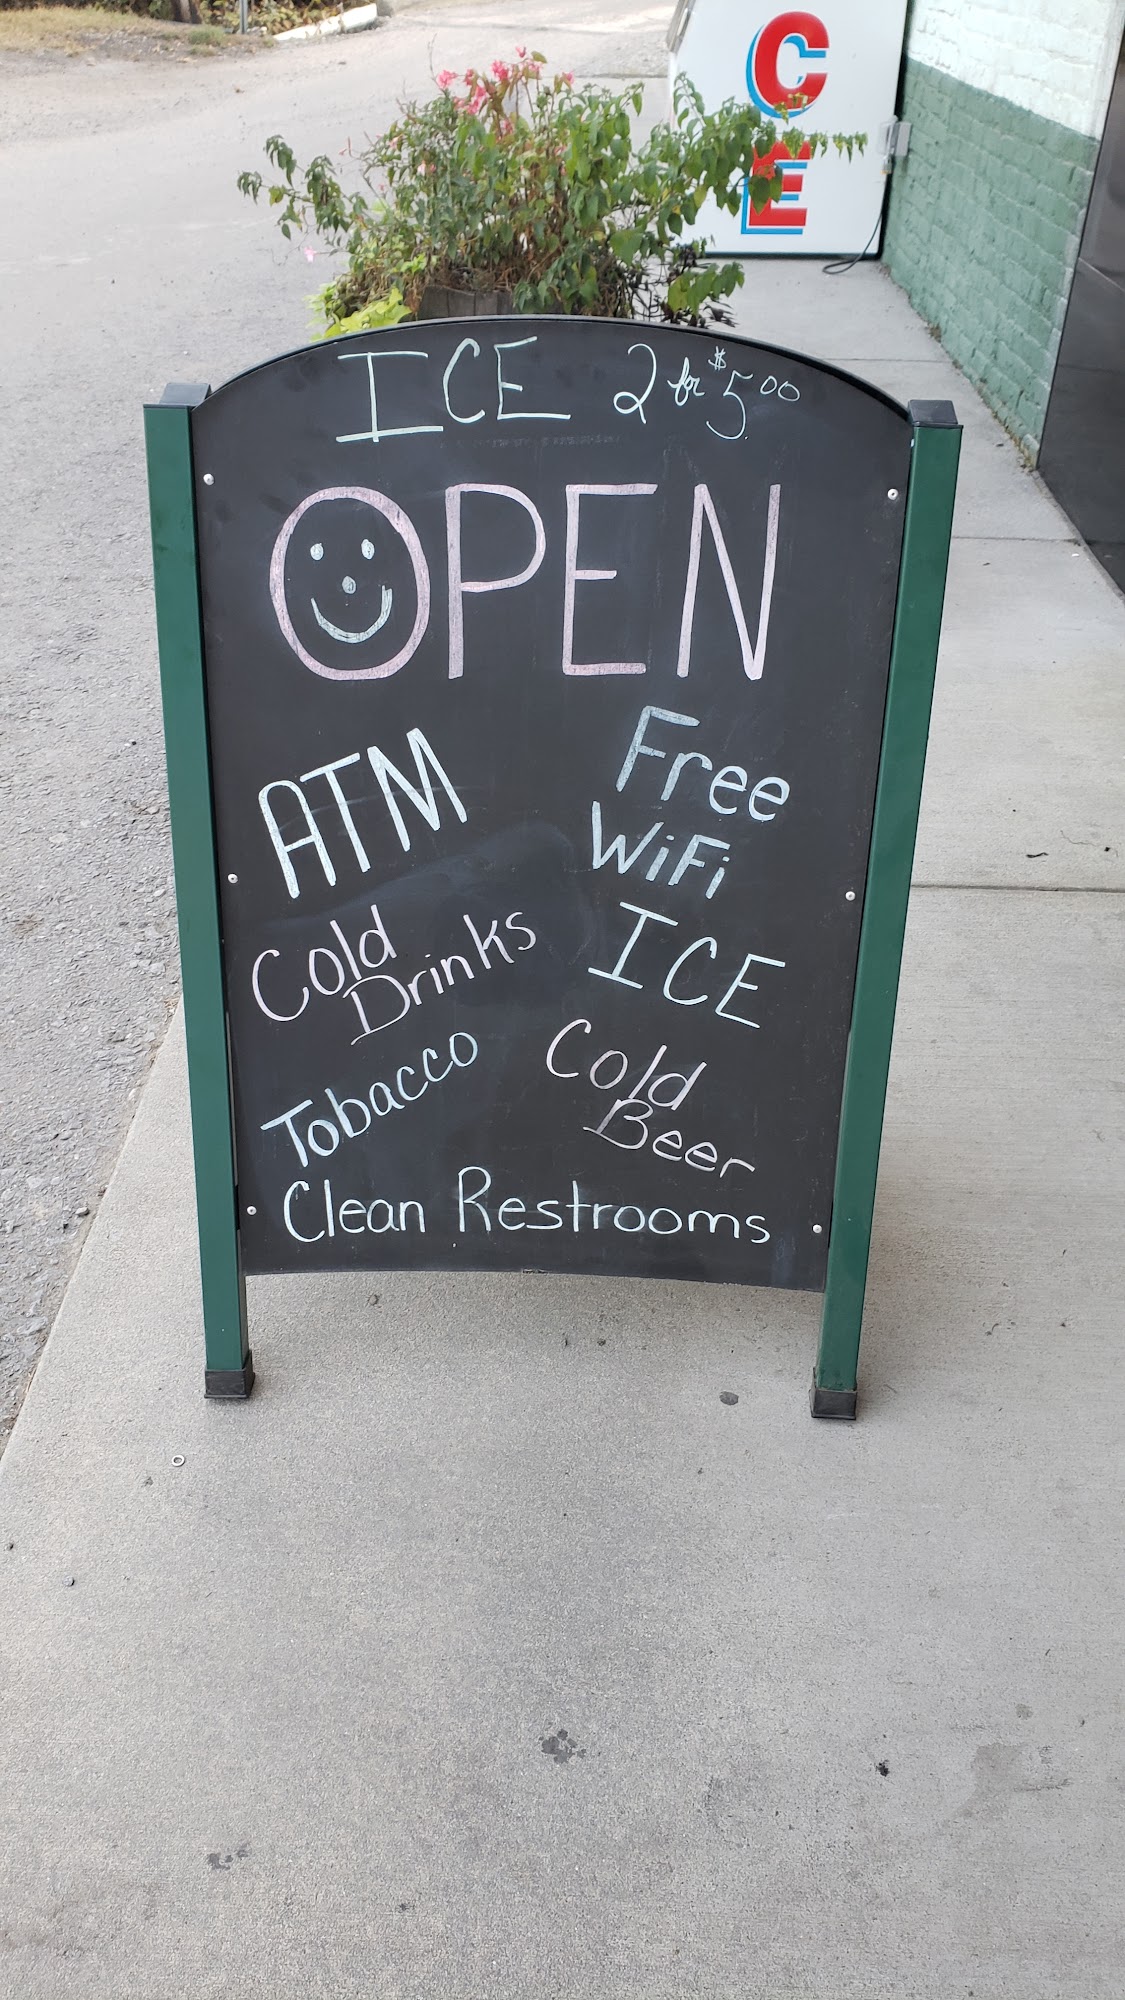 CE
ICE 2 for $5.00
OPEN
ATM
Free
WiFi
Cold
Drinks
ICE
Tobacco
Cold
Beer
Clean Restrooms